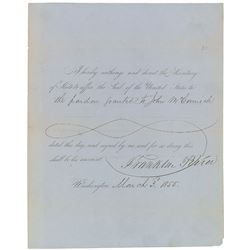 I hereby authorize and direct the Secretary
of State to affix the Seal of the United States to
the pardon granted to John McCormick
dated this day, and signed by me, and for so doing this
shall be his warrant.
Franklin Pierce
Washington, March 3, 1855.